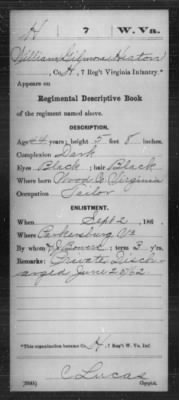 H | 7 | W. Va.
William Gilmore Heaton
Co. H, 7 Reg't Virginia Infantry.*
Appears on
Regimental Descriptive Book
of the regiment named above.
DESCRIPTION.
Age 44 years; height 5 feet 8 inches.
Complexion Dark
Eyes Black; hair Black
Where born Wood Co Virginia
Occupation Tailor
ENLISTMENT.
When Sept 2, 186 .
Where Parkersburg Va
By whom ; term 3 y'rs.
Remarks: Private Disch
arged June 20/62
*This organization became Co. H, 7 Reg't W. Va. Inf.
C Lucas
Copyist.